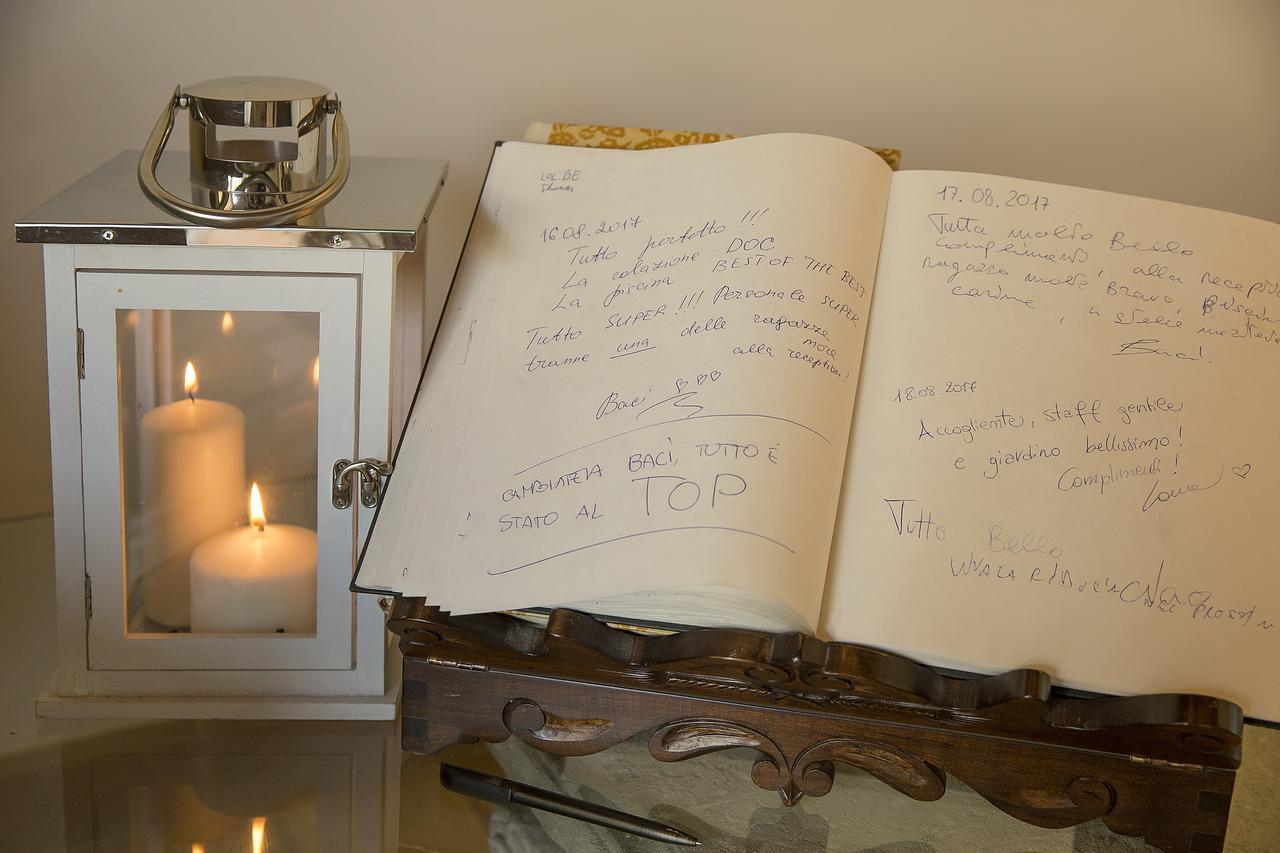 LOL.BE
Thomas
16.08.2017
Tutto perfetto !!!
La colazione DOC
La piscina BEST OF THE BEST
Tutto SUPER!!! Personale SUPER
tranne una delle ragazze
more
alla reception!
Baci
BACI, TUTTO É
STATO AL TOP
17.08.2017
Tutto molto Bello
complimenti, alla
ragazza molto Brava,
carine,
Baci!
18.08.2017
Accogliente, staff gentile
e giardino bellissimo!
Complimenti!
Tutto Bello